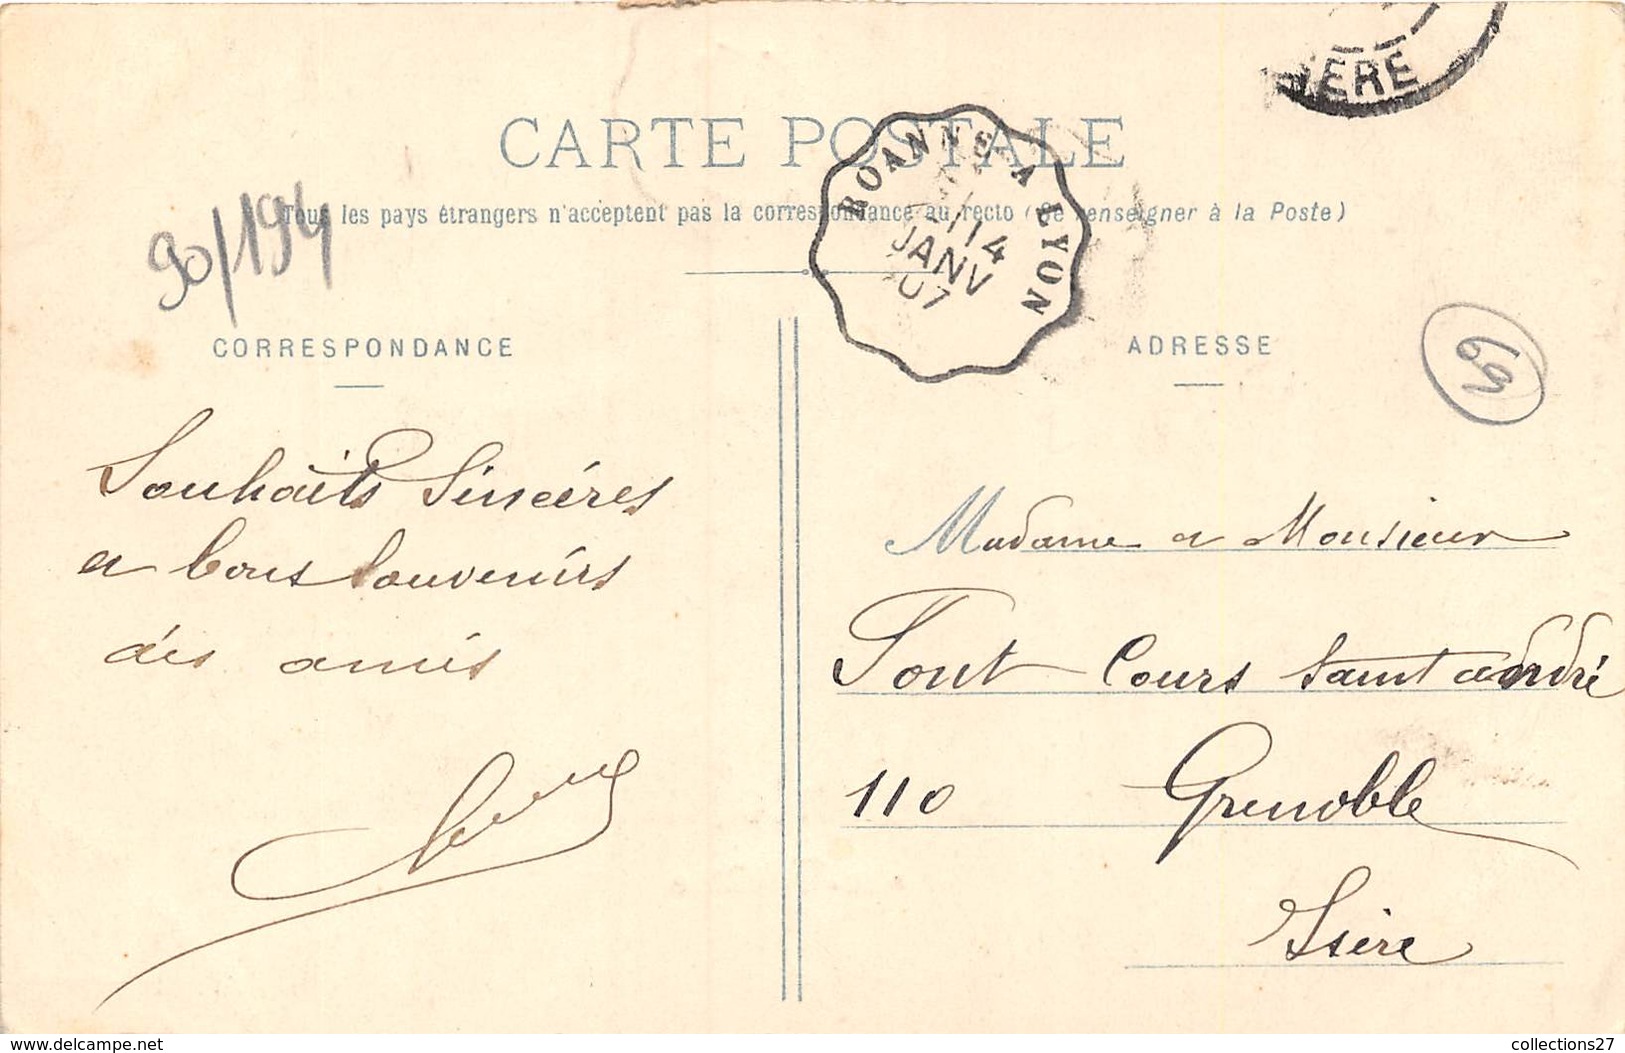 CARTE POSTALE
Tous les pays étrangers n'acceptent pas la correspondance au recto (Se renseigner à la Poste)
90/194
ROANNE A LYON
14
JANV
07
ISÈRE
CORRESPONDANCE
Souhaits Sincères
et bons souvenirs
des amis
ADRESSE
69
Madame et Monsieur
Pont Cours Saint André
110 Grenoble
Isère
www.delcampe.net
collections27